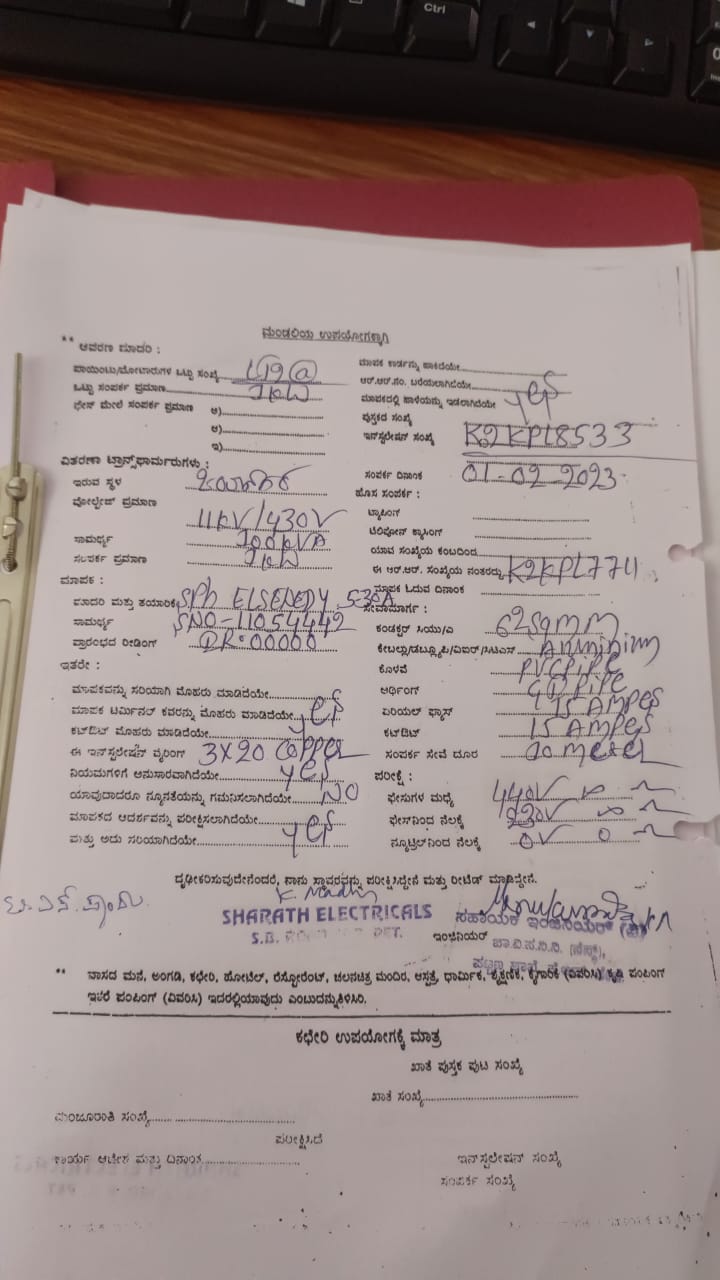 Ctrl
ಮಂಡಲಿಯ ಉಪಯೋಗಕ್ಕಾಗಿ
** ಆವರಣ ಮಾದರಿ :
ಪಾಯಿಂಟು/ಮೋಟಾರುಗಳ ಒಟ್ಟು ಸಂಖ್ಯೆ
ಒಟ್ಟು ಸಂಪರ್ಕ ಪ್ರಮಾಣ
ಫೇಸ್ ಮೇಲೆ ಸಂಪರ್ಕ ಪ್ರಮಾಣ ಅ)
ಆ)
ಇ)
ವಿತರಣಾ ಟ್ರಾನ್ಸ್‌ಫಾರ್ಮರುಗಳು :
ಇರುವ ಸ್ಥಳ
ವೋಲ್ಟೇಜ್ ಪ್ರಮಾಣ 11KV/430V
ಸಾಮರ್ಥ್ಯ 100KVA
ಸಂಪರ್ಕ ಪ್ರಮಾಣ
ಮಾಪಕ :
ಮಾದರಿ ಮತ್ತು ತಯಾರಿಕೆ SPh 5-30A
ಸಾಮರ್ಥ್ಯ SNO-11054442
ಪ್ರಾರಂಭದ ರೀಡಿಂಗ್ 00000
ಇತರೇ :
ಮಾಪಕವನ್ನು ಸರಿಯಾಗಿ ಮೊಹರು ಮಾಡಿದೆಯೇ
ಮಾಪಕ ಟರ್ಮಿನಲ್ ಕವರನ್ನು ಮೊಹರು ಮಾಡಿದೆಯೇ yes
ಕಟ್‌ಔಟ್ ಮೊಹರು ಮಾಡಿದೆಯೇ
ಈ ಇನ್‌ಸ್ಟಲೇಷನ್ ವೈರಿಂಗ್ 3X20 Copper
ನಿಯಮಗಳಿಗೆ ಅನುಸಾರವಾಗಿದೆಯೇ yes
ಯಾವುದಾದರೂ ನ್ಯೂನತೆಯನ್ನು ಗಮನಿಸಲಾಗಿದೆಯೇ NO
ಮಾಪಕದ ಆದರ್ಶವನ್ನು ಪರೀಕ್ಷಿಸಲಾಗಿದೆಯೇ
ಮತ್ತು ಅದು ಸರಿಯಾಗಿದೆಯೇ yes
ಮಾಪಕ ಕಾರ್ಡನ್ನು ಹಾಕಿದೆಯೇ
ಆರ್.ಆರ್.ನಂ. ಬರೆಯಲಾಗಿದೆಯೇ
ಮಾಪಕದಲ್ಲಿ ಹಾಳೆಯನ್ನು ಇಡಲಾಗಿದೆಯೇ yes
ಪುಸ್ತಕದ ಸಂಖ್ಯೆ
ಇನ್‌ಸ್ಟಲೇಷನ್ ಸಂಖ್ಯೆ K2KPL8533
ಸಂಪರ್ಕ ದಿನಾಂಕ 01-02-2023
ಹೊಸ ಸಂಪರ್ಕ :
ಟ್ಯಾಪಿಂಗ್
ಟೆಲಿಫೋನ್ ಕ್ರಾಸಿಂಗ್
ಯಾವ ಸಂಖ್ಯೆಯ ಕಂಬದಿಂದ
ಈ ಆರ್.ಆರ್. ಸಂಖ್ಯೆಯ ನಂತರದ್ದು K2KPL7711
ಮಾಪಕ ಓದುವ ದಿನಾಂಕ
ಸೇವಾಮಾರ್ಗ :
ಕಂಡಕ್ಟರ್ ಸಿಯು/ಎ 62sqmm
ಕೇಬಲ್ಲು/ಡಬ್ಲ್ಯೂಪಿ/ವಿಐಆರ್/ಸಿಟಿಎಸ್ Aluminium
ಕೊಳವೆ PVCPipe
ಅರ್ಥಿಂಗ್ GI Pipe
ಏರಿಯಲ್ ಫ್ಯೂಸ್ 15 AMPes
ಕಟ್‌ಔಟ್ 15 AMPes
ಸಂಪರ್ಕ ಸೇವೆ ದೂರ 20 meter
ಪರೀಕ್ಷೆ :
ಫೇಸುಗಳ ಮಧ್ಯೆ 440V ∞
ಫೇಸ್‌ನಿಂದ ನೆಲಕ್ಕೆ 230V ∞
ನ್ಯೂಟ್ರಲ್‌ನಿಂದ ನೆಲಕ್ಕೆ 0V 0
ದೃಢೀಕರಿಸುವುದೇನೆಂದರೆ, ನಾನು ಸ್ಥಾವರವನ್ನು ಪರೀಕ್ಷಿಸಿದ್ದೇನೆ ಮತ್ತು ರೀಟೆಡ್ ಮಾಡಿದ್ದೇನೆ.
SHARATH ELECTRICALS
ಸಹಾಯಕ ಇಂಜಿನಿಯರ್ (ವಿ)
ಇಂಜಿನಿಯರ್
** ವಾಸದ ಮನೆ, ಅಂಗಡಿ, ಕಛೇರಿ, ಹೋಟೆಲ್, ರೆಸ್ಟೋರೆಂಟ್, ಚಲನಚಿತ್ರ ಮಂದಿರ, ಆಸ್ಪತ್ರೆ, ಧಾರ್ಮಿಕ, ಶೈಕ್ಷಣಿಕ, ಕೈಗಾರಿಕೆ (ವಿವರಿಸಿ) ಕೃಷಿ ಪಂಪಿಂಗ್
ಇತರೆ ಪಂಪಿಂಗ್ (ವಿವರಿಸಿ) ಇದರಲ್ಲಿಯಾವುದು ಎಂಬುದನ್ನು ತಿಳಿಸಿರಿ.
ಕಛೇರಿ ಉಪಯೋಗಕ್ಕೆ ಮಾತ್ರ
ಖಾತೆ ಪುಸ್ತಕ ಪುಟ ಸಂಖ್ಯೆ
ಖಾತೆ ಸಂಖ್ಯೆ
ಮಂಜೂರಾತಿ ಸಂಖ್ಯೆ
ಪರೀಕ್ಷಿಸಿದೆ
ಕಾರ್ಯ ಆದೇಶ ಮತ್ತು ದಿನಾಂಕ
ಇನ್‌ಸ್ಟಲೇಷನ್ ಸಂಖ್ಯೆ
ಸಂಪರ್ಕ ಸಂಖ್ಯೆ